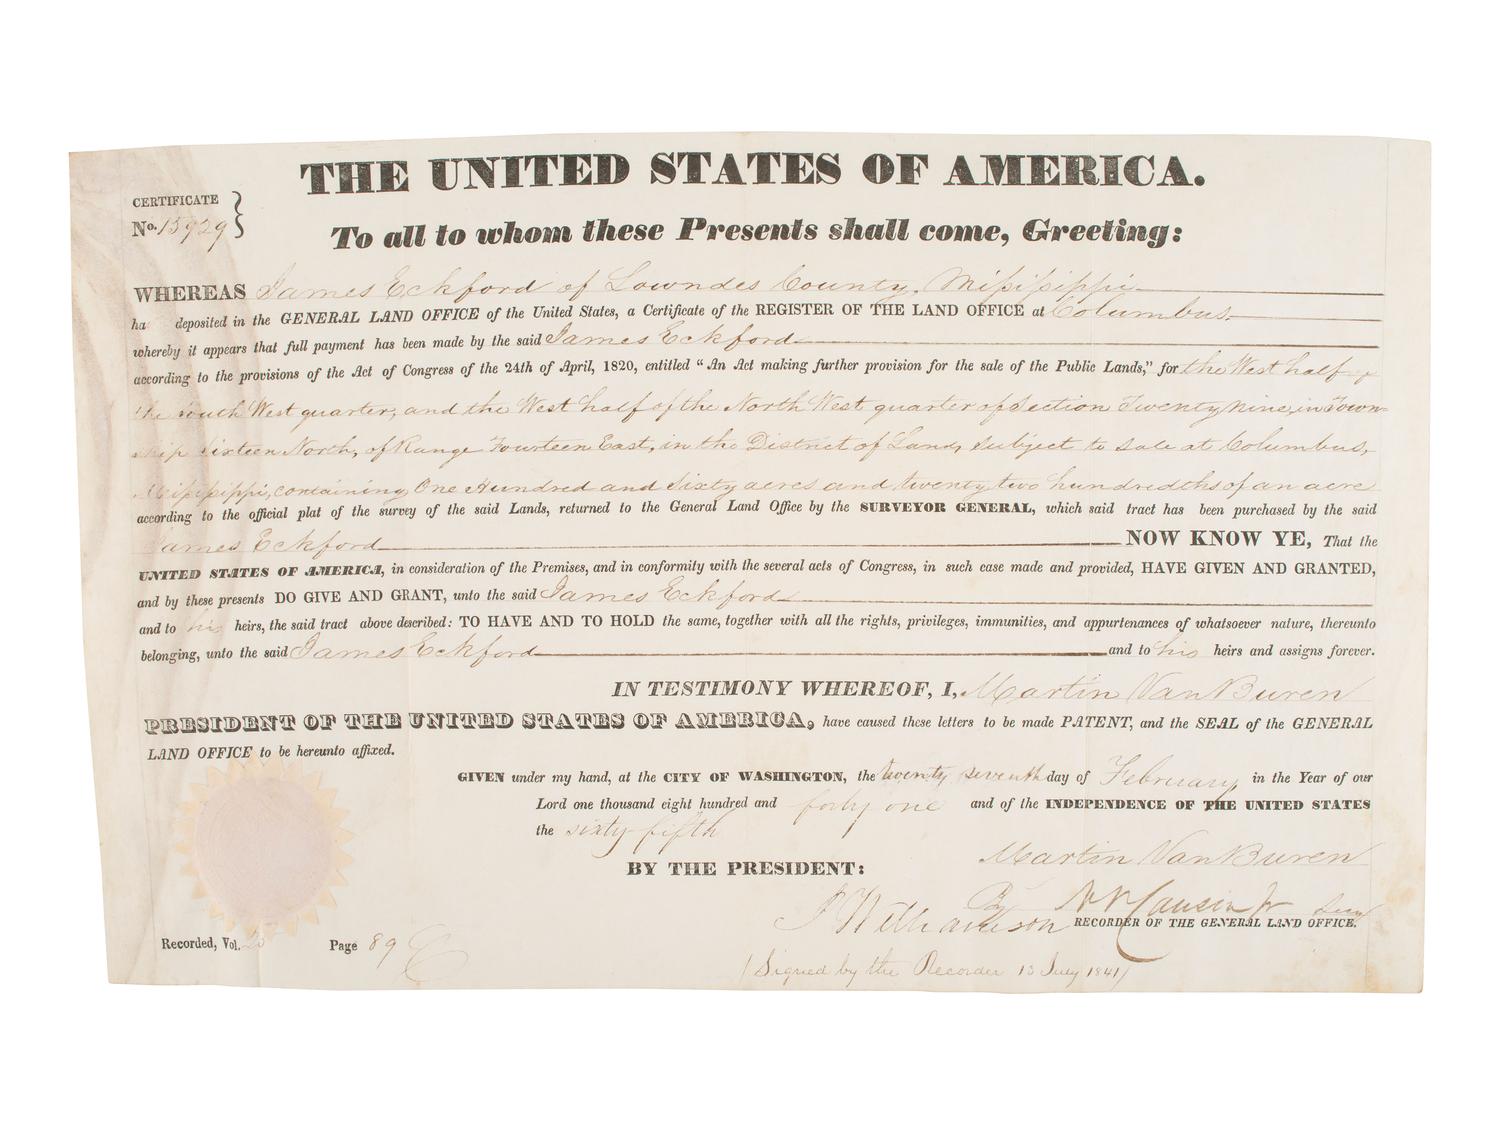 THE UNITED STATES OF AMERICA.
CERTIFICATE
No. 15929
To all to whom these Presents shall come, Greeting:
WHEREAS James Eckford of Lowndes County, Missisippi
ha deposited in the GENERAL LAND OFFICE of the United States, a Certificate of the REGISTER OF THE LAND OFFICE at Columbus
whereby it appears that full payment has been made by the said James Eckford
according to the provisions of the Act of Congress of the 24th of April, 1820, entitled "An Act making further provision for the sale of the Public Lands," for the West half of
the South West quarter, and the West half of the North West quarter of Section Twenty nine, in Town=
ship Sixteen North, of Range Fourteen East, in the District of Lands subject to sale at Columbus,
Missisippi, containing One Hundred and Sixty acres and twenty two hundredths of an acre
according to the official plat of the survey of the said Lands, returned to the General Land Office by the SURVEYOR GENERAL, which said tract has been purchased by the said
James Eckford NOW KNOW YE, That the
UNITED STATES OF AMERICA, in consideration of the Premises, and in conformity with the several acts of Congress, in such case made and provided, HAVE GIVEN AND GRANTED,
and by these presents DO GIVE AND GRANT, unto the said James Eckford
and to his heirs, the said tract above described: TO HAVE AND TO HOLD the same, together with all the rights, privileges, immunities, and appurtenances of whatsoever nature, thereunto
belonging, unto the said James Eckford and to his heirs and assigns forever.
IN TESTIMONY WHEREOF, I, Martin Van Buren
PRESIDENT OF THE UNITED STATES OF AMERICA, have caused these letters to be made PATENT, and the SEAL of the GENERAL
LAND OFFICE to be hereunto affixed.
GIVEN under my hand, at the CITY OF WASHINGTON, the twenty seventh day of February in the Year of our
Lord one thousand eight hundred and forty one and of the INDEPENDENCE OF THE UNITED STATES
the sixty fifth
BY THE PRESIDENT: Martin Van Buren
By
J Williamson RECORDER OF THE GENERAL LAND OFFICE.
Recorded, Vol. Page 89
(Signed by the Recorder 13 July 1841)